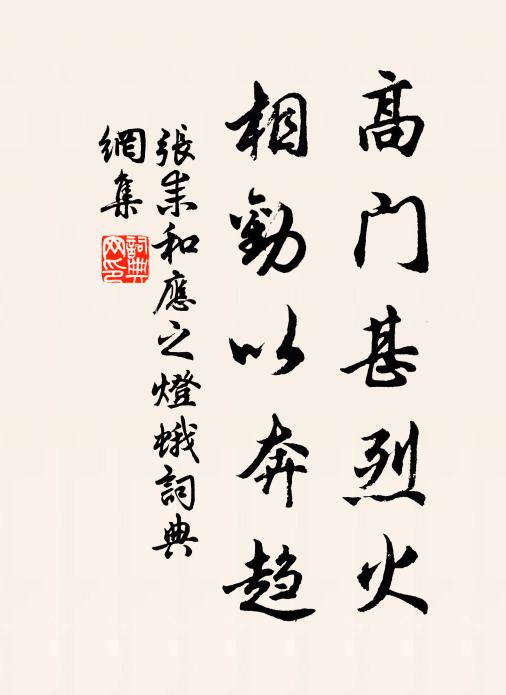 高門甚烈火
相勸以奔趋
張耒和應之燈蛾詞典
網集
詞典
网印